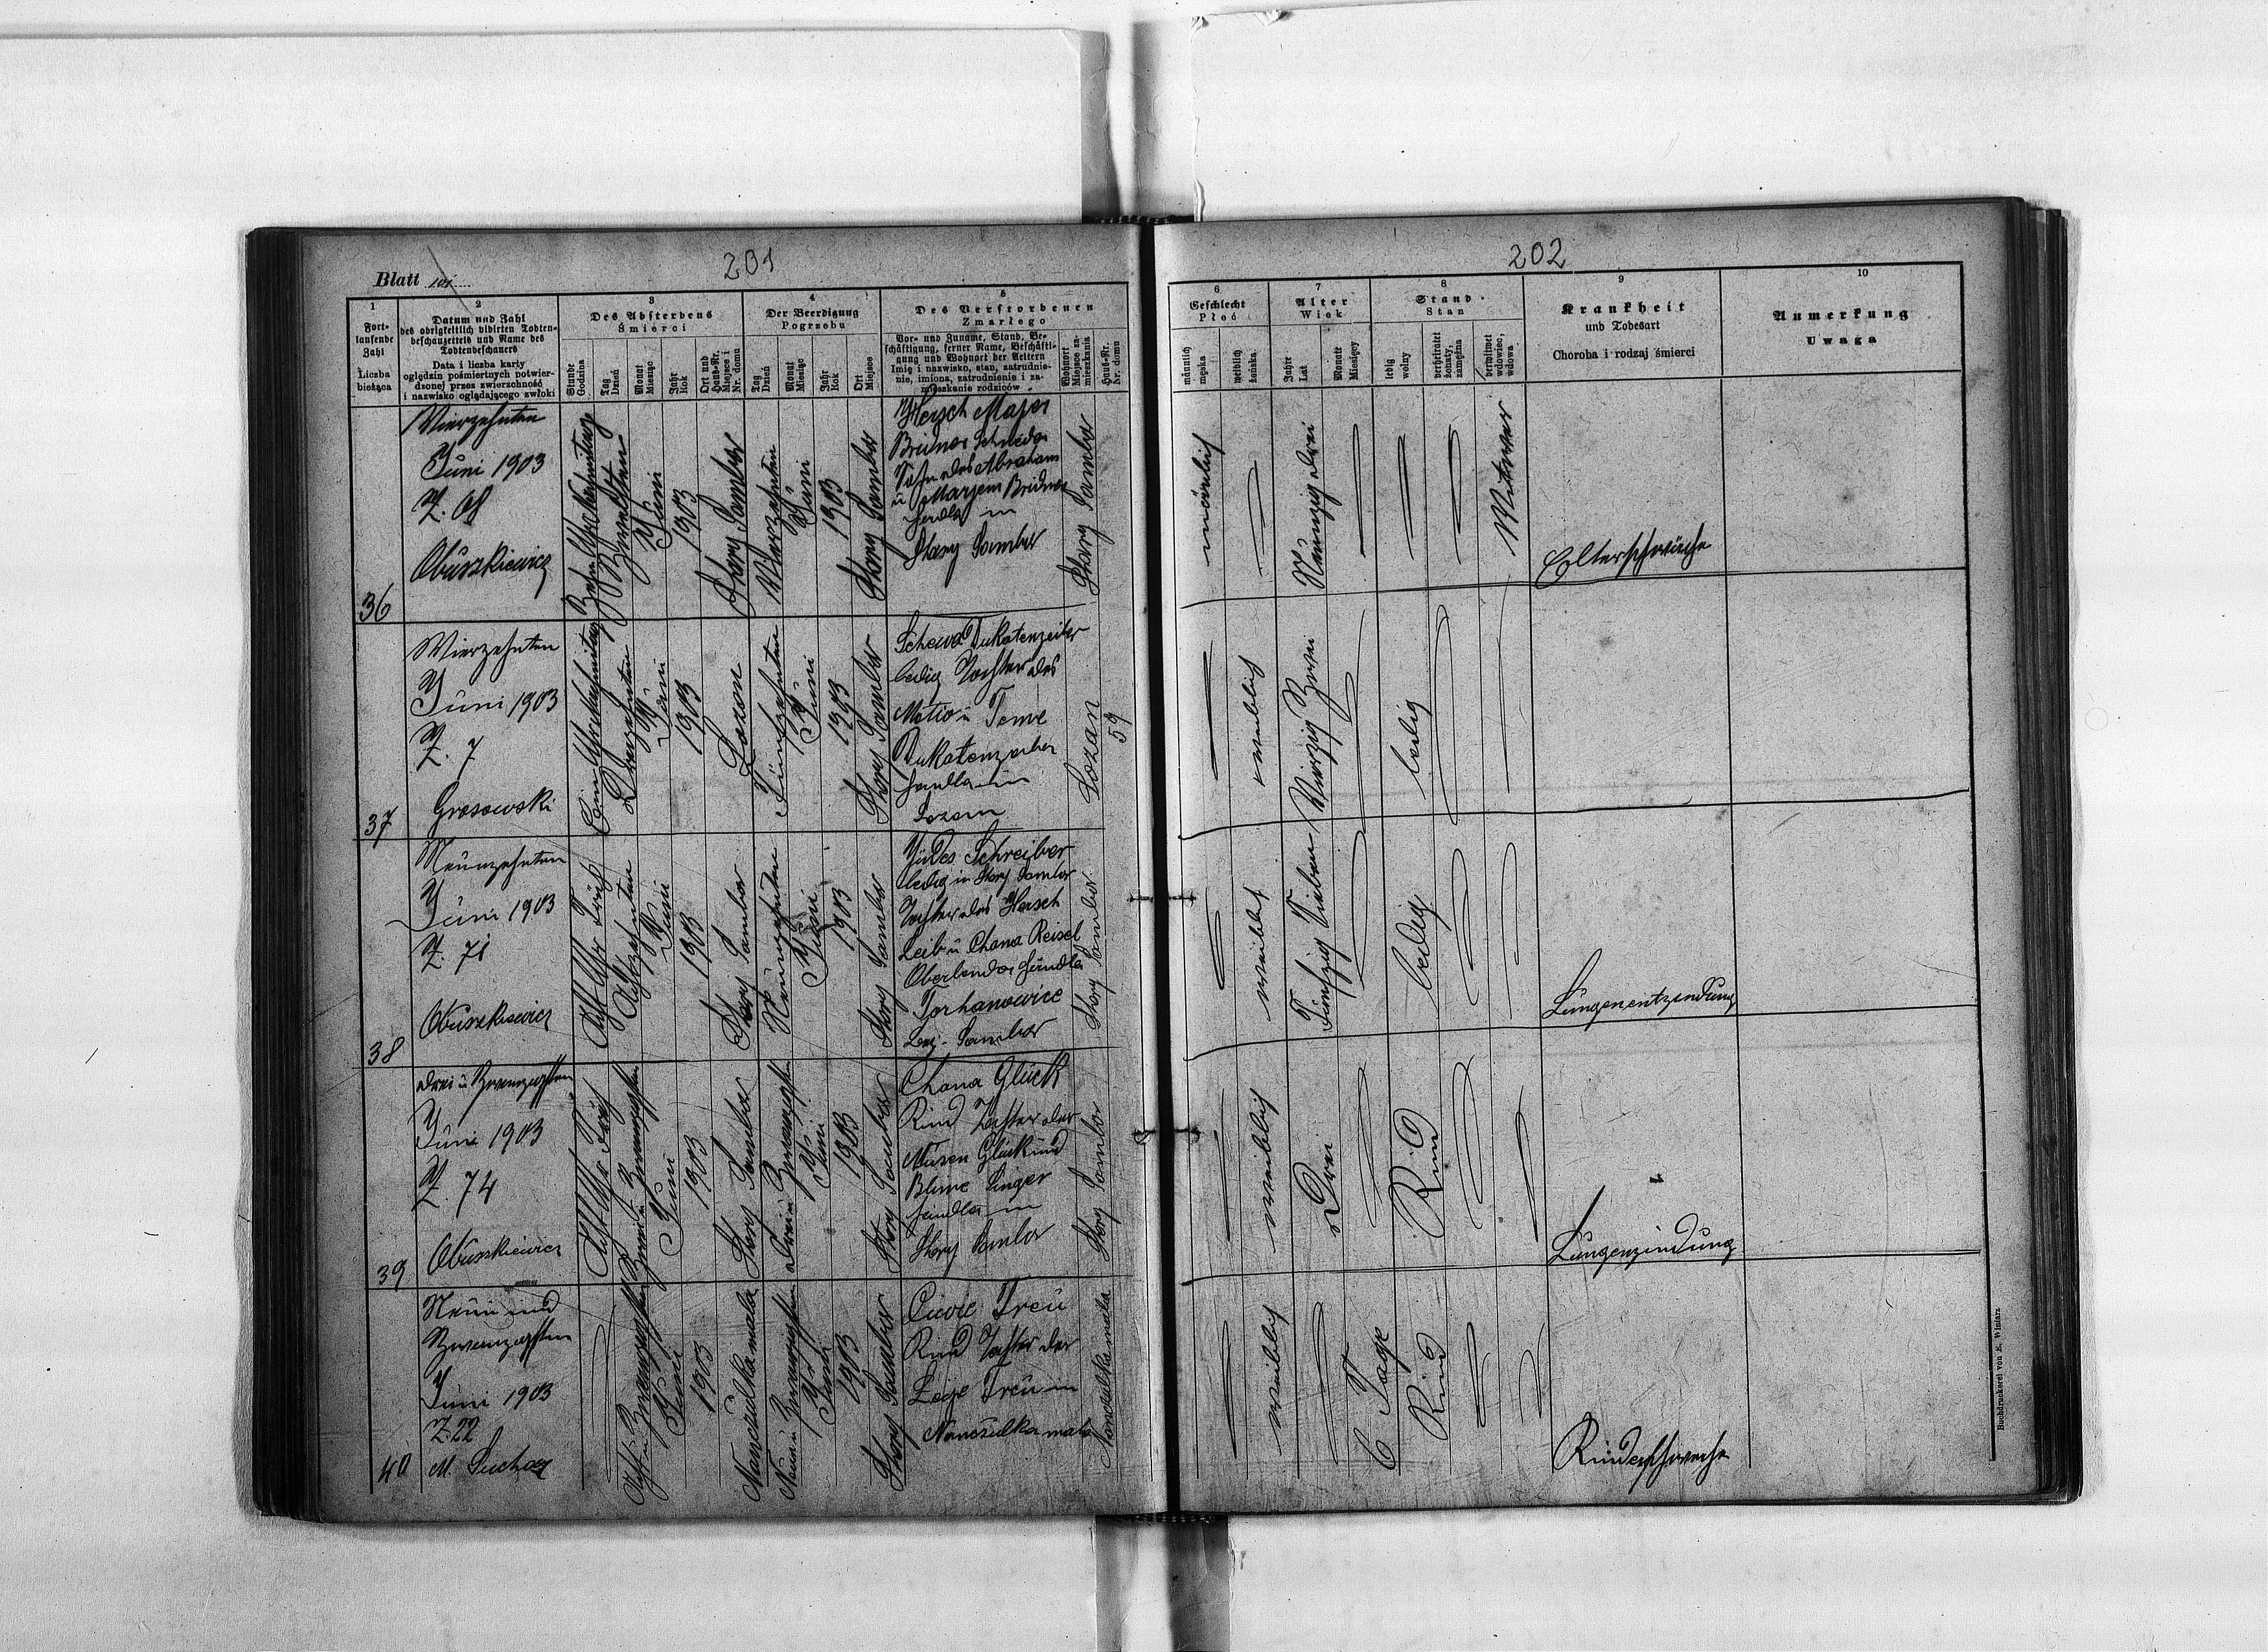 201
202
Blatt 101
1
Fort-
laufende
Zahl
Liczba
bieżąca
2
Datum und Zahl
des obrigkeitlich vidirten Todten-
beschauzettels und Name des
Todtenbeschauers
Data i liczba karty
oględzin pośmiertnych potwier-
dzonej przez zwierzchność
i nazwisko oglądającego zwłoki
3
Des Absterbens
Śmierci
Stunde
Godzina
Tag
Dzień
Monat
Miesiąc
Jahr
Rok
Ort und
Haus-Nr.
Miejsce i
Nr. domu
4
Der Beerdigung
Pogrzebu
Tag
Dzień
Monat
Miesiąc
Jahr
Rok
Ort
Miejsce
5
Des Verstorbenen
Zmarłego
Vor- und Zuname, Stand, Be-
schäftigung, ferner Name, Beschäfti-
gung und Wohnort der Aeltern
Imię i nazwisko, stan, zatrudnie-
nie, imiona, zatrudnienie i za-
mieszkanie rodziców
Wohnort
Miejsce za-
mieszkania
Haus-Nr.
Nr. domu
6
Geschlecht
Płeć
männlich
męska
weiblich
żeńska
7
Alter
Wiek
Jahre
Lat
Monate
Miesięcy
8
Stand
Stan
ledig
wolny
verheiratet
żonaty,
zamężna
verwitwet
wdowiec,
wdowa
9
Krankheit
und Todesart
Choroba i rodzaj śmierci
10
Anmerkung
Uwaga
36
Vierzehnten
Juni 1903
Z. 68
Obuszkiewicz
Zehn Uhr Nachmittag
Juni
1903
Stary Sambor
Vierzehnten
Juni
1903
Stary Sambor
Hersch Majer
Bridner Schneider
Sohn des Abraham
u Marjem Bridner
in
Stary Sambor
Stary Sambor
männlich
Neunzig drei
Witwer
Elterschwäche
37
Vierzehnten
Juni 1903
Z. 7
Grosowski
Dreizehnten
Juni
1903
Lozan
Fünfzehnten
Juni
1903
Stary Sambor
Scheva Dukatenzeiler
ledig Tochter des
u Teme
in
Lozan
Lozan
59
weiblich
Vierzig Zwei
ledig
38
Neunzehnten
Juni 1903
Z. 71
Obuszkiewicz
Acht Uhr Früh
Achtzehnten
Juni
1903
Stary Sambor
Neunzehnten
Juni
1903
Stary Sambor
Judes Schreiber
ledig in Stary Sambor
Tochter des Hersch
Leib u Chana Reisel
Oberlender Händler
Torhanowice
Bez. Sambor
Stary Sambor
weiblich
Fünfzig Sieben
ledig
Lungenentzendung
39
drei u Zwanzigsten
Juni 1903
Z. 74
Obuszkiewicz
Acht Uhr Früh
Zwei u Zwanzigsten
Juni
1903
Stary Sambor
Drei u Zwanzigsten
Juni
1903
Stary Sambor
Chana Glück
Kind Tochter der
Nusen Glück und
Blime Singer
in
Stary Sambor
Stary Sambor
weiblich
Drei
Kind
Lungenzindung
40
Neun und
Zwanzigsten
Juni 1903
Z. 22
Acht u Zwanzigsten
Juni
1903
Nanczulka mala
Neun u Zwanzigsten
Juni
1903
Stary Sambor
Treu
Kind Tochter der
Leije Treu in
Nanczulka mala
Nanczulka mala
weiblich
6 Tage
Kind
Kinderschweche
Buchdruckerei von E. Winiarz